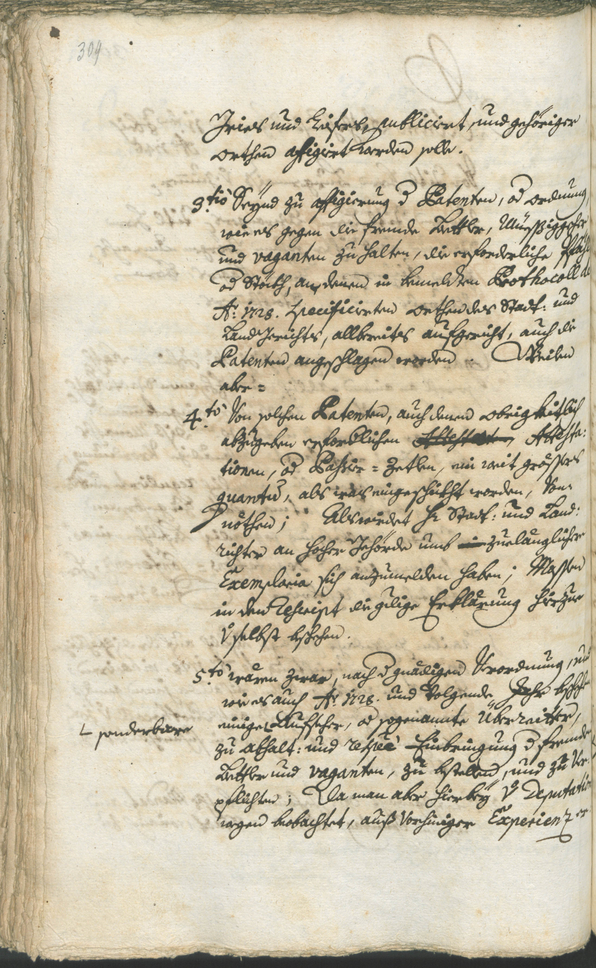 304
Gries und Lüsens, publiciret, und gehöriger
orthen affigirt werden solle.
3.tio Seynd zu affigierung d Patenten, od ordnung,
wie es gegen die frembde Bettler, Müessiggeher
und vaganten zu halten, die erforderliche
od Stöckh, an denen in bemelten Prothocoll de
A: 1728. specificirten orthen des Stadt: und
Landgerichts, allbereits aufgericht, auch die
Patenten angeschlagen worden. Weilen
aber =
4.to Von solchen Patenten, auch denen obrigkeitlich
abzugeben erforderlichen Attesta:
tionen, od Passier = Zetlen, ein weit grösseres
quantum, als was eingeschickht worden, Von-
nöthen; Als wirdet H: Stadt: und Land:
richter an hocher Behörde umb zuelänglicher
Exemplaria sich anzumelden haben; Massen
in dem Rescript diegilige Erklärung hierzue
selbst beschehen.
5.to wären zwar, nach d gnädigen Verordnung, und
wie es auch A: 1728. und volgende Jahr beschehen
einige Aufseher, od sogenannte Überreiter,
sonderbare
zu abhalt: und Einbringung d frembde
Bettler und vaganten, zu bestellen, und zu Ver-
pflichten; Da man aber hierbey Deputation
wegen beobachtet, auß Vorheriger Experienz